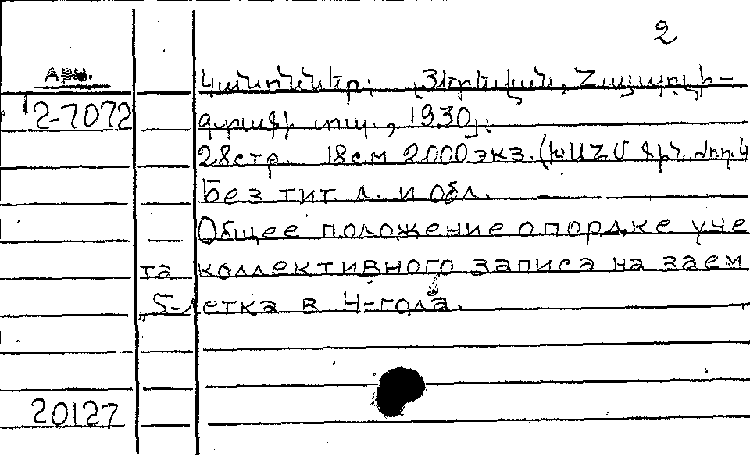 2
АРМ.
Կանոններ. [Յերեվան, Հայպոլի-
2-7072
գրաֆի տպ., 1930].
28стр. 18см 2000экз. (ԽՍՀՄ Ֆին. ժող. կ
Без тит л. и обл.
Общее положение о пордке уче
та коллективного записа на заем
„5-летка в 4-года.
20127